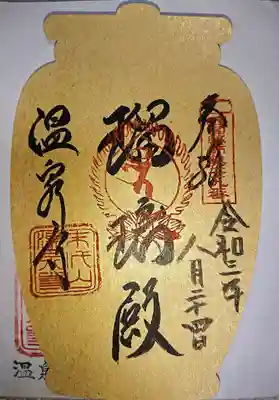 奉拝
令和三年
八月二十四日
瑠璃殿
温泉寺
末代山
温泉